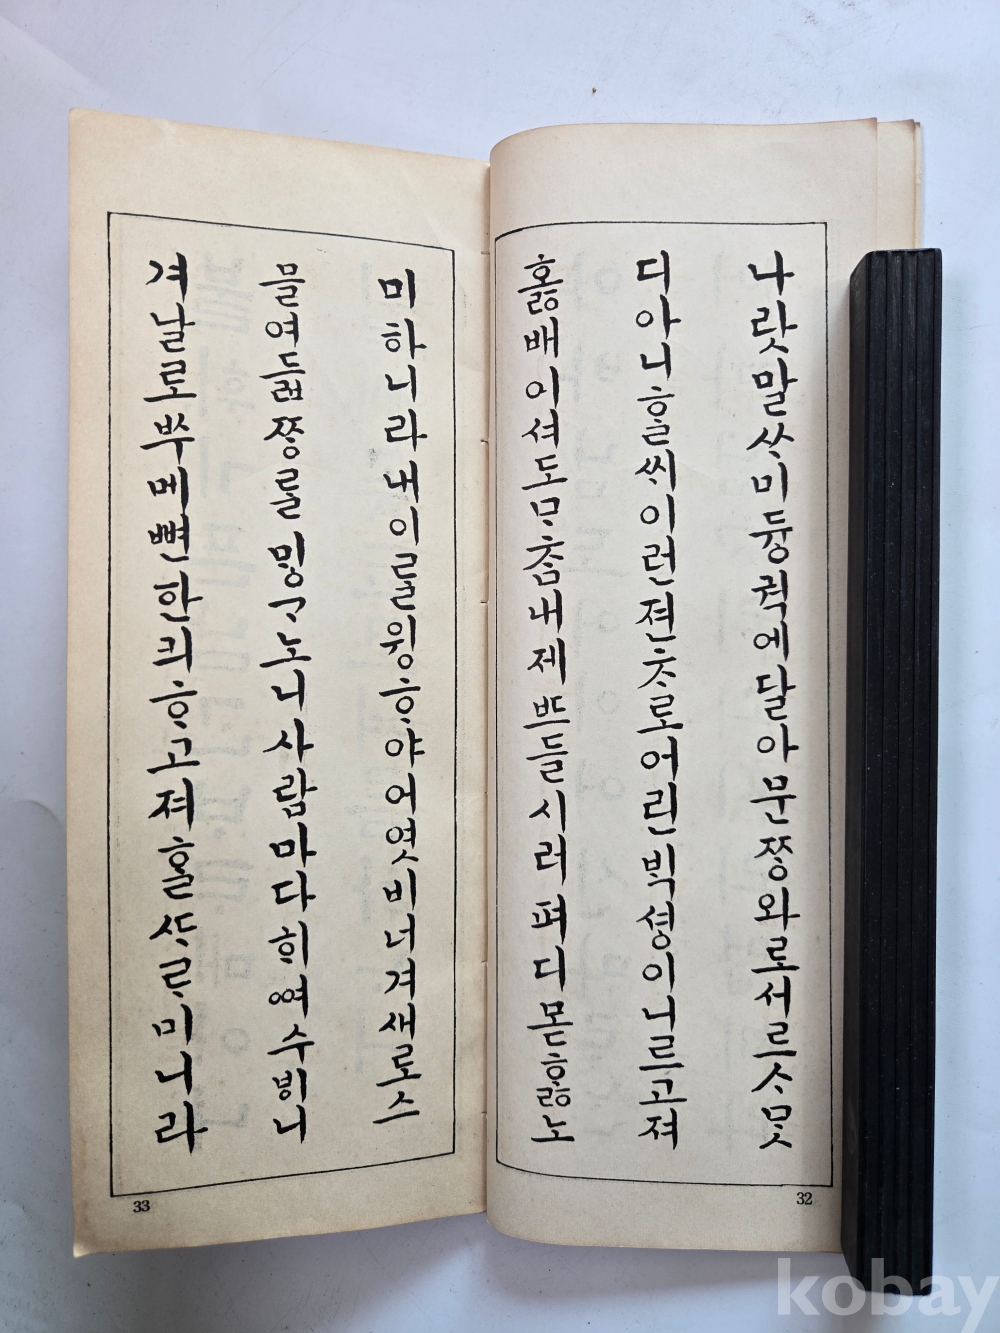 나랏말ᄊᆞ미듕귁에달아문ᄍᆞᆼ와로서르ᄉᆞᄆᆞᆺ
디아니ᄒᆞᆯᄊᆡ이런젼ᄎᆞ로어린ᄇᆡᆨ셩이니르고져
호ᇙ배이셔도ᄆᆞᄎᆞᆷ내제ᄠᅳ들시러펴디몯ᄒᆞᇙ노
32
미하니라내이ᄅᆞᆯ윙ᄒᆞ야어엿비너겨새로스
믈여듧ᄍᆞᆼᄅᆞᆯᄆᆡᇰᄀᆞ노니사람마다ᄒᆡᅇᅧ수ᄫᅵ니
겨날로ᄡᅮ메뼌한킈ᄒᆞ고져홀ᄯᆞᄅᆞ미니라
33
kobay